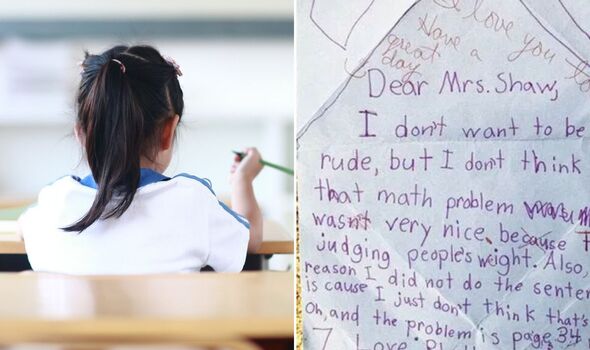 I love you to
Have a
great
day
Dear Mrs. Shaw,
I don't want to be
rude, but I dont think
that math problem
wasn't very nice, because
judging people's weight. Also,
reason I did not do the senten
is cause I just don't think that's
Oh, and the problem is page 34
Love